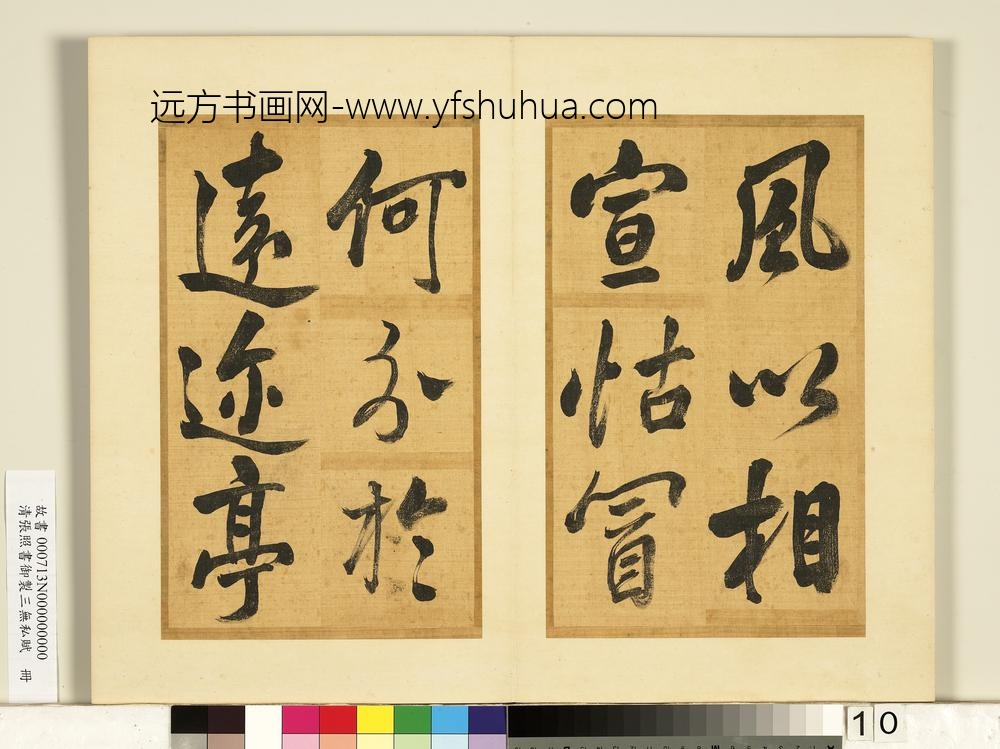 远方书画网-www.yfshuhua.com
風以相
宣怙冒
何分於
遠迩亭
故書 000713N000000000
清張照書御製三無私賦 冊
10